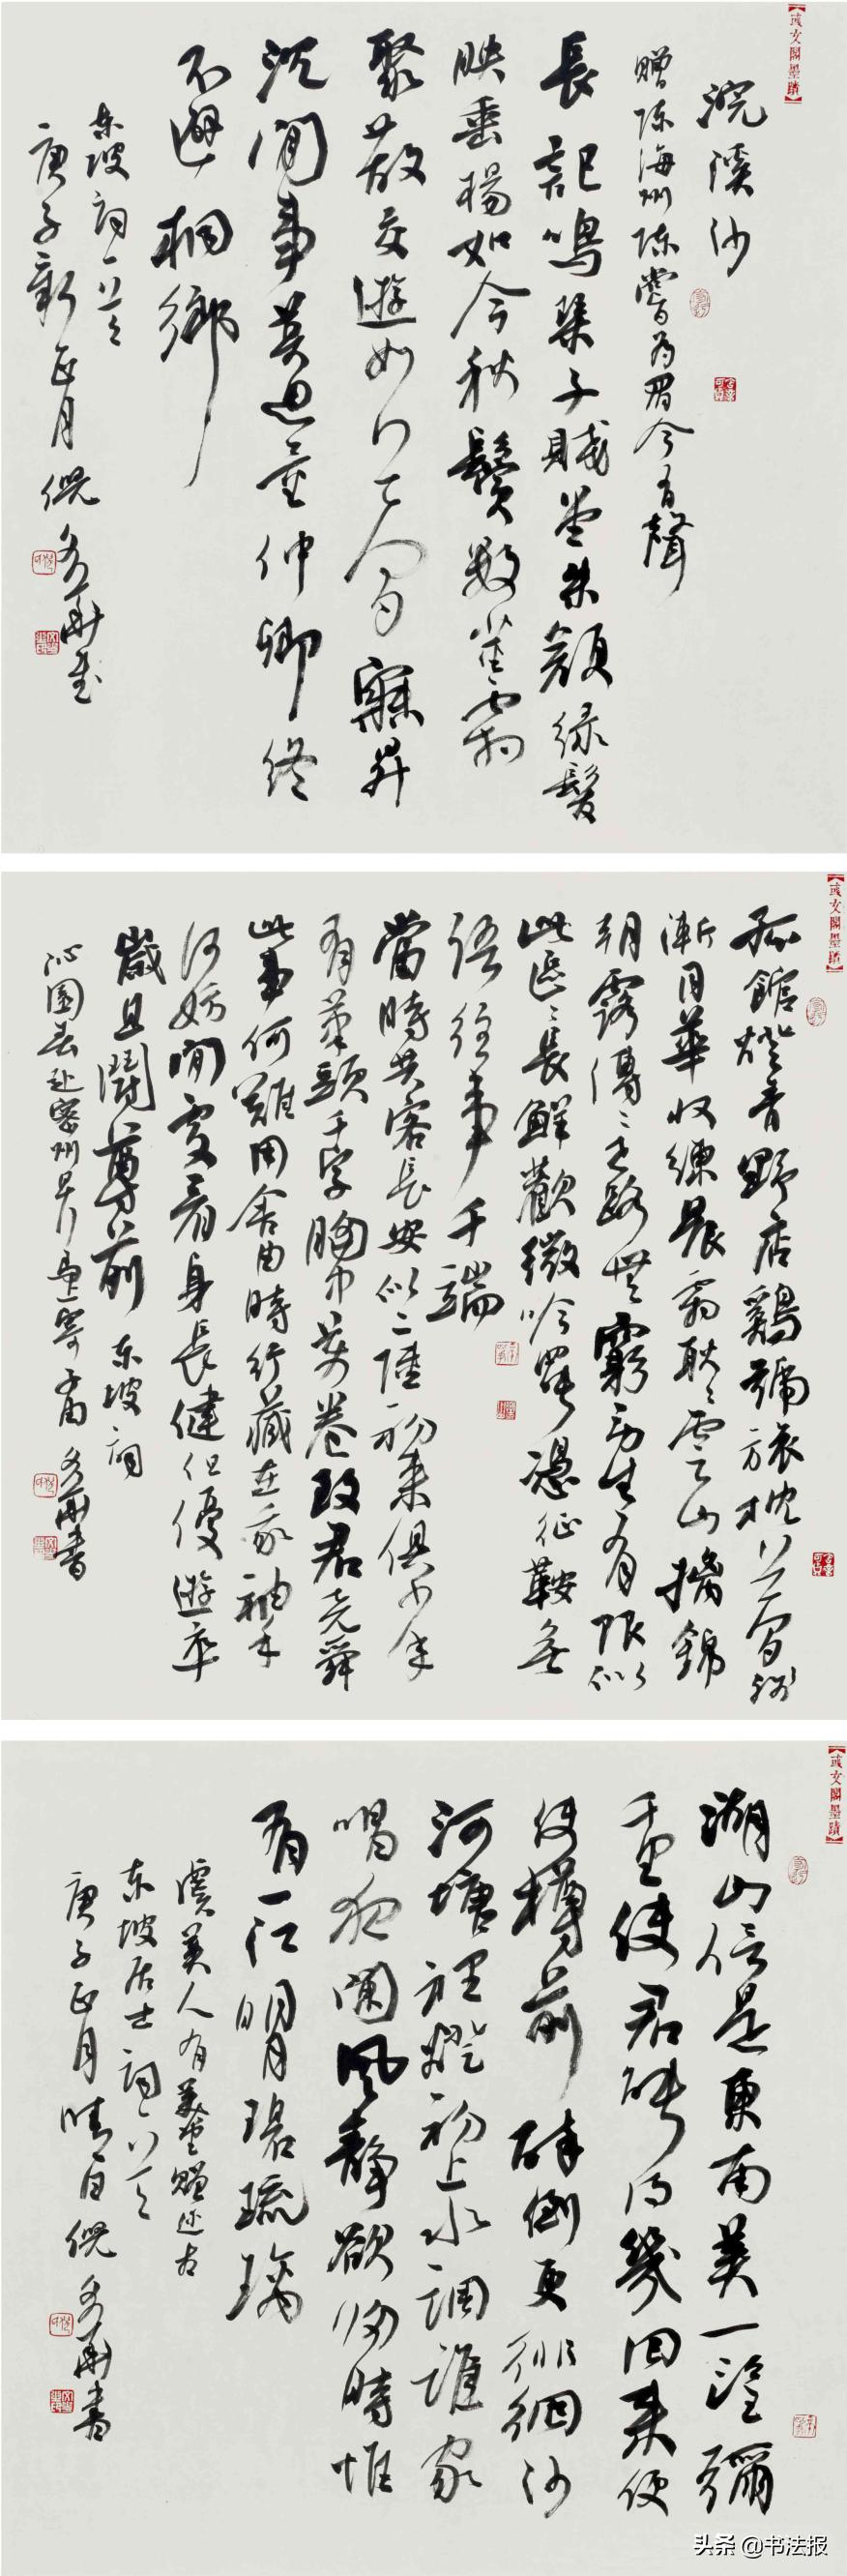 【彧文閣墨蹟】
浣溪沙
贈陈海州陈嘗为眉令有聲
長記鳴琴子賤堂朱顏绿髮
映垂楊如今秋鬢數莖霜
聚散交遊如夢寐昇
沉閒事莫思量仲卿终
不避桐鄉
东坡词一首
庚子新正月倪華書
【彧文閣墨蹟】
孤館燈青野店鷄號旅枕夢殘
漸月華收練晨霜耿耿雲山摛錦
朝露漙漙世路無窮勞生有限似
此區區長鮮歡微吟罷憑征鞍無
語往事千端
當時共客長安似二陸初來俱少年
有筆頭千字胸中萬卷致君堯舜
此事何難用舍由時行藏在我袖手
何妨閒處看身長健但優遊卒
歲且鬭尊前 东坡词
沁園春赴密州早行馬上寄子由 華書
【彧文閣墨蹟】
湖山信是東南美一望彌
千里使君能得幾回來便
使樽前醉倒更徘徊沙
河塘裡燈初上水調誰家
唱夜闌風靜欲归時惟
有一江明月碧琉璃
虞美人有美堂贈述古
东坡居士词一首
庚子正月晴日倪華書
头条 @书法报